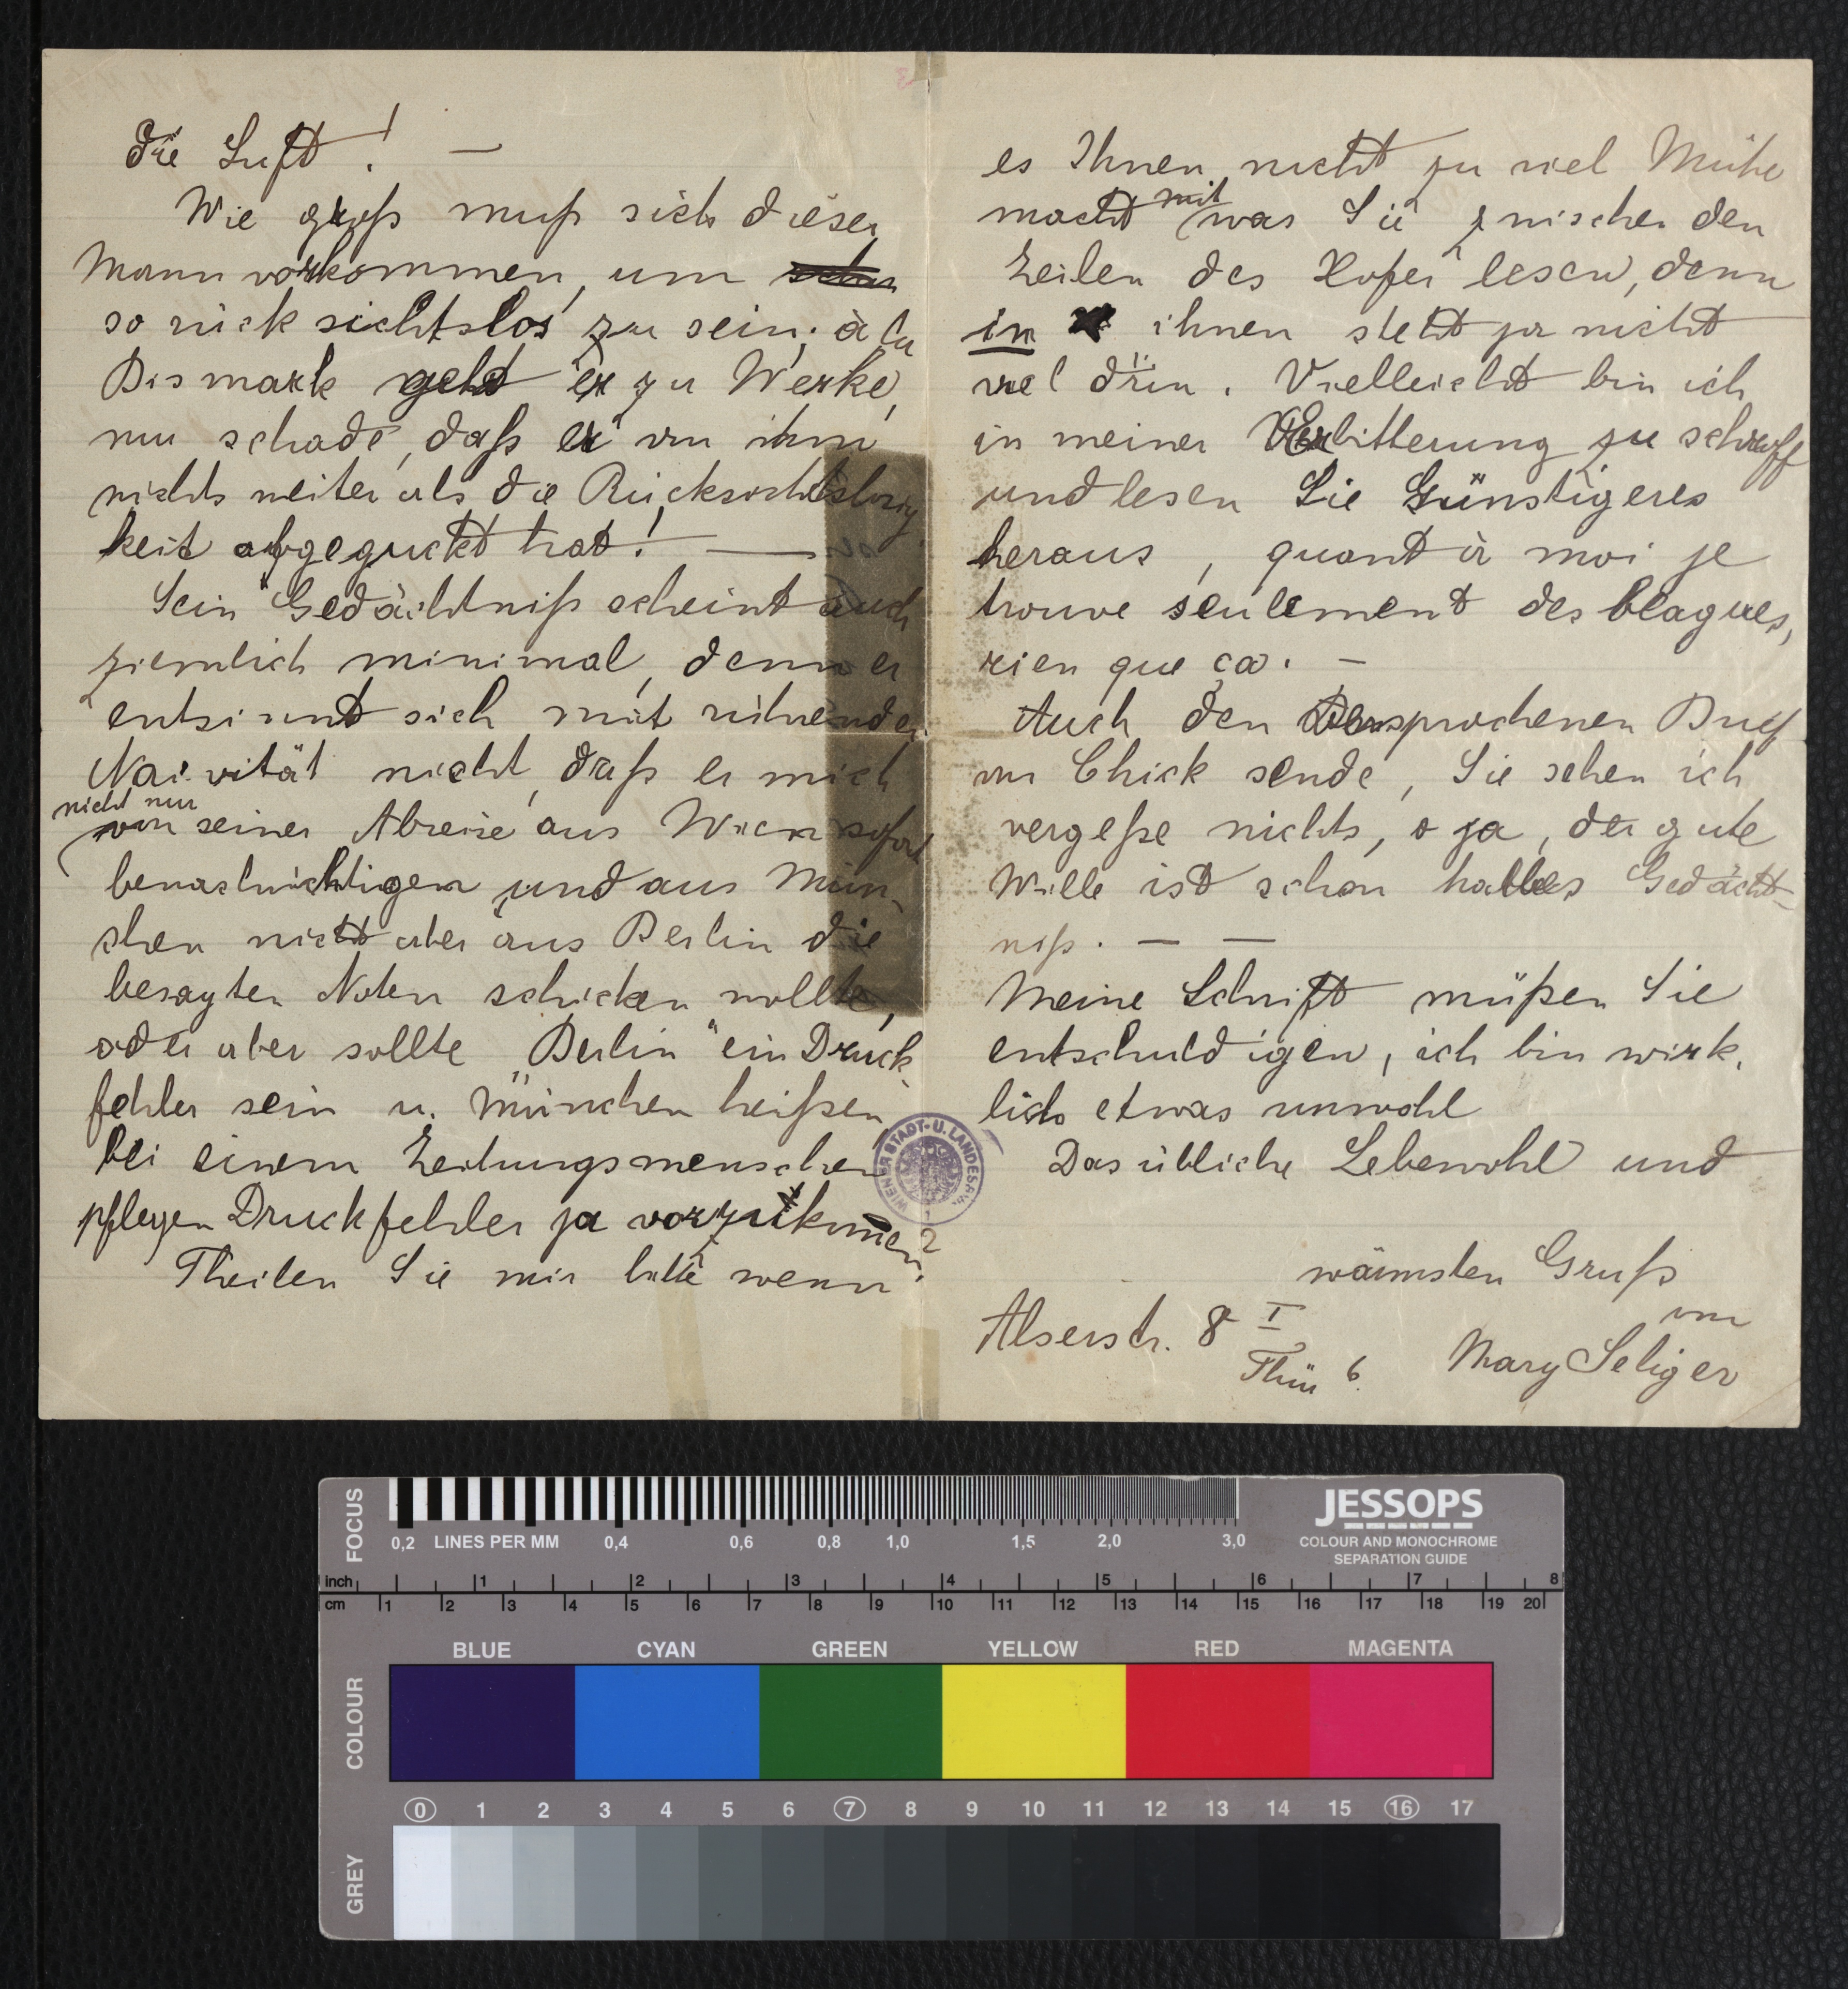 die Luft! —
Wie groß muß sich dieser
Mann vorkommen, um
so rücksichtslos zu sein; à la
Bismark geht er zu Werke,
nur schade, daß er von ihm
nichts weiter als die Rücksichtslosig
keit abgeguckt hat! —
Sein Gedächtniß scheint auch
ziemlich minimal, denn er
entsinnt sich mit rührender
Naivität nicht, daß er mich
nicht nur
von seiner Abreise aus Wien sofort
benachrichtigen und aus Mün-
chen nicht aber aus Berlin die
besagten Noten schicken wollte,
oder aber sollte „Berlin" ein Druck
fehler sein u. München heißen
bei einem Zeitungsmenschen
pflegen Druckfehler ja vorzukommen.
Theilen Sie mir bitte wenn
2
es Ihnen nicht zu viel Mühe
macht mit was Sie zwischen den
Zeilen des Hofer lesen, denn
in ihnen steht ja nicht
viel drin. Vielleicht bin ich
in meiner Verbitterung zu schroff
und lesen Sie Günstigeres
heraus, quant à moi je
trouve seulement des blagues,
rien que ça. —
Auch den versprochenen Brief
von Chick sende, Sie sehen ich
vergeße nichts, o ja, der gute
Wille ist schon halbes Gedächt-
niß. — —
Meine Schrift müßen Sie
entschuldigen, ich bin wirk-
lich etwas unwohl
Das übliche Lebewohl und
wärmsten Gruß
von
Mary Seliger
Alserstr. 8 I
Thür 6.
WIENER STADT- U. LANDESBIB.
FOCUS
0,2 LINES PER MM 0,4 0,6 0,8 1,0 1,5 2,0 3,0
JESSOPS
COLOUR AND MONOCHROME
SEPARATION GUIDE
inch 1 2 3 4 5 6 7 8
cm 1 2 3 4 5 6 7 8 9 10 11 12 13 14 15 16 17 18 19 20
BLUE CYAN GREEN YELLOW RED MAGENTA
COLOUR
0 1 2 3 4 5 6 7 8 9 10 11 12 13 14 15 16 17
GREY